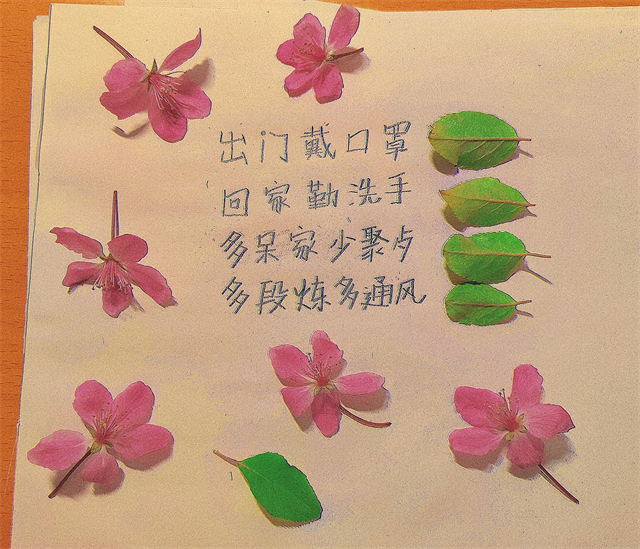 出门戴口罩
回家勤洗手
多呆家少聚歺
多段炼多通风